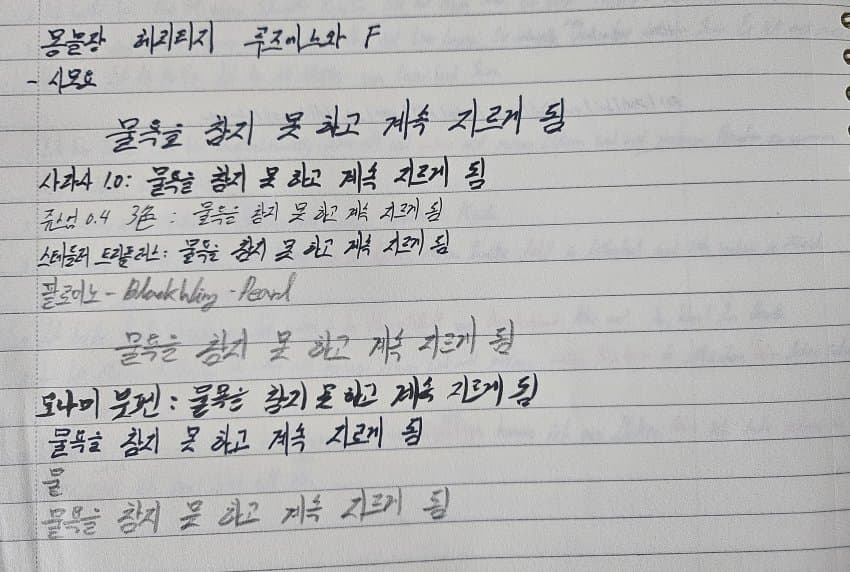 몽블랑 헤리티지 루즈에느와 F
- 시모요
물욕을 참지 못 하고 계속 지르게 됨
사라사 1.0: 물욕을 참지 못 하고 계속 지르게 됨
쥬스업 0.4 3色 : 물욕을 참지 못 하고 계속 지르게 됨
스테들러 트리플러스: 물욕을 참지 못 하고 계속 지르게 됨
플로이노 - Blackbling - Pearl
물욕을 참지 못 하고 계속 지르게 됨
모나미 붓펜 : 물욕을 참지 못 하고 계속 지르게 됨
물욕을 참지 못 하고 계속 지르게 됨
물
물욕을 참지 못 하고 계속 지르게 됨